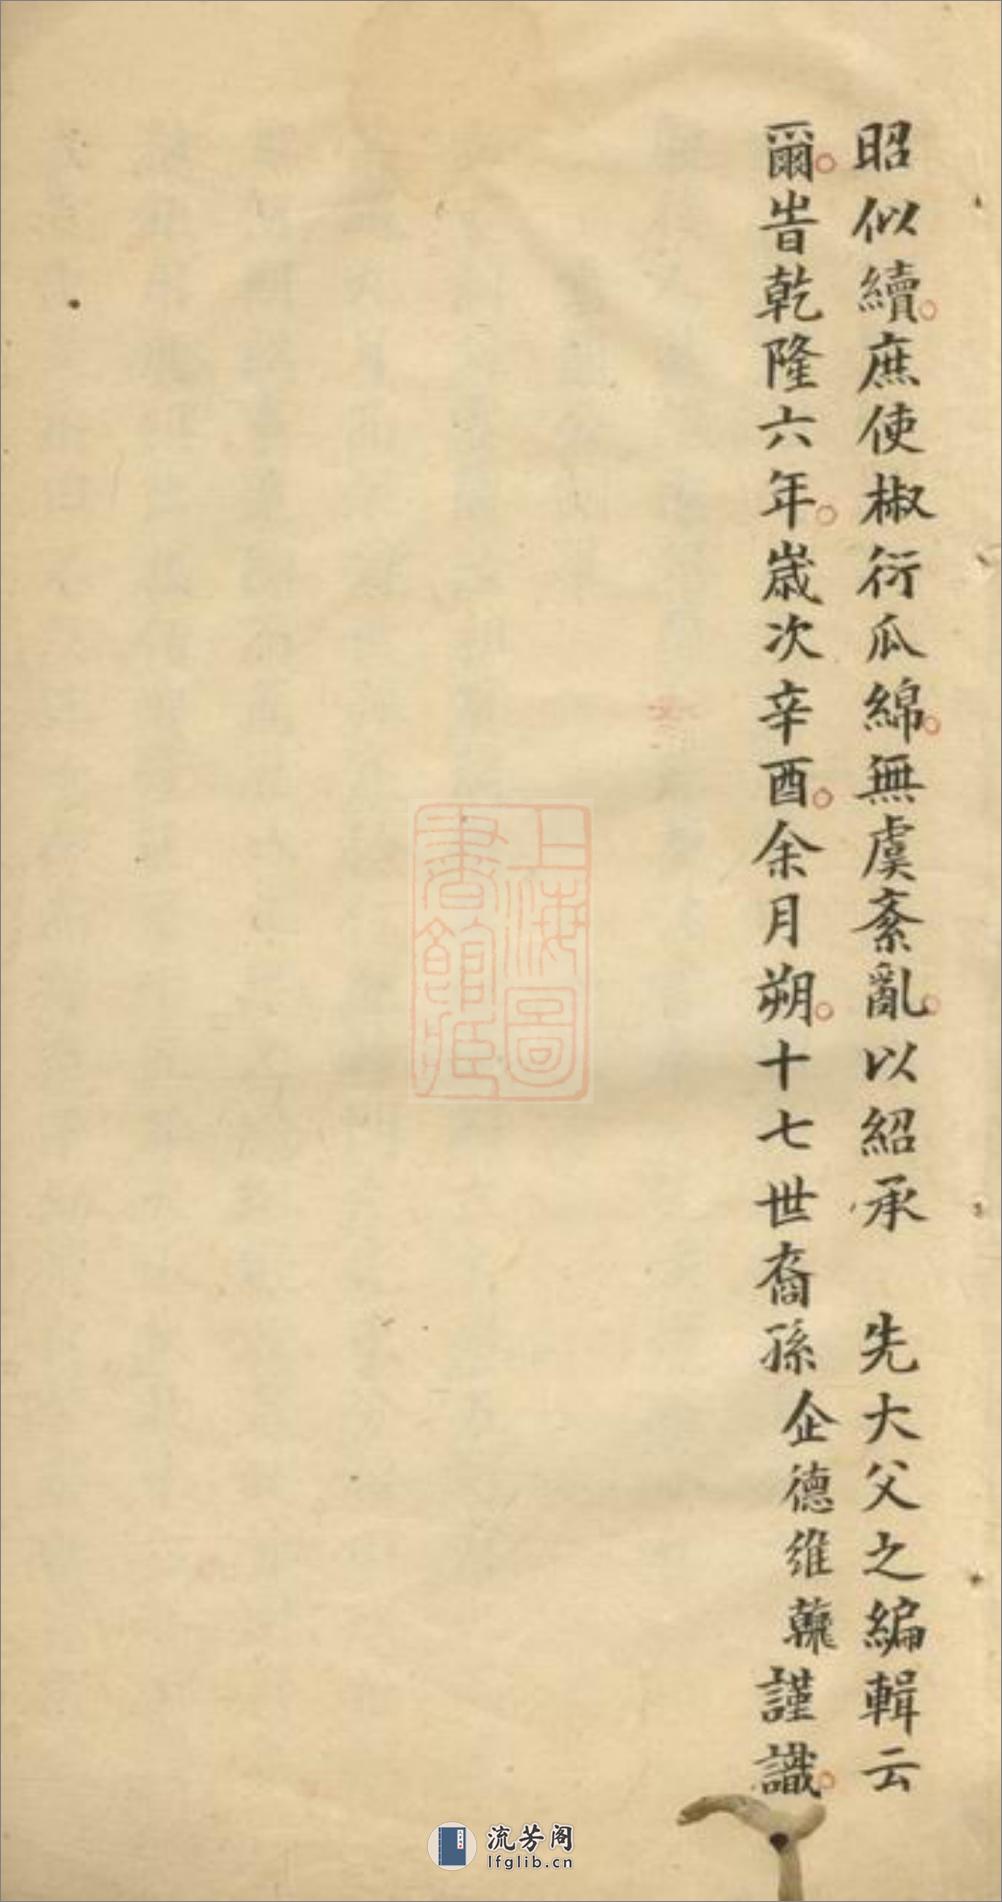 昭似續庶使椒衍瓜綿無虞紊亂以紹承　先大父之編輯云
爾旹乾隆六年歲次辛酉余月朔十七世裔孫企德維謹識
上海圖
書館藏
流芳阁
lfglib.cn